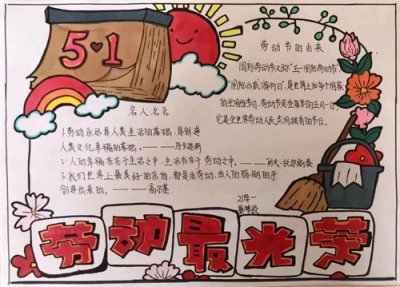 5·1
劳动节的由来
国际劳动节又称"五一国际劳动节",
"国际示威游行日"。是世界上80多个国家
的全国性节日。劳动节定在每年的五月一日,
它是全世界劳动人民共同拥有的节日。
名人名言
1.劳动永远是人类生活的基础,是创造
人类文化幸福的基础。———马卡连柯
2.人的幸福存在于生活之中,生活存在于劳动之中。——列夫·托尔斯泰
3.我们世界上最美好的东西,都是由劳动、由人的聪明的手
创造出来的。——高尔基
劳动最光荣